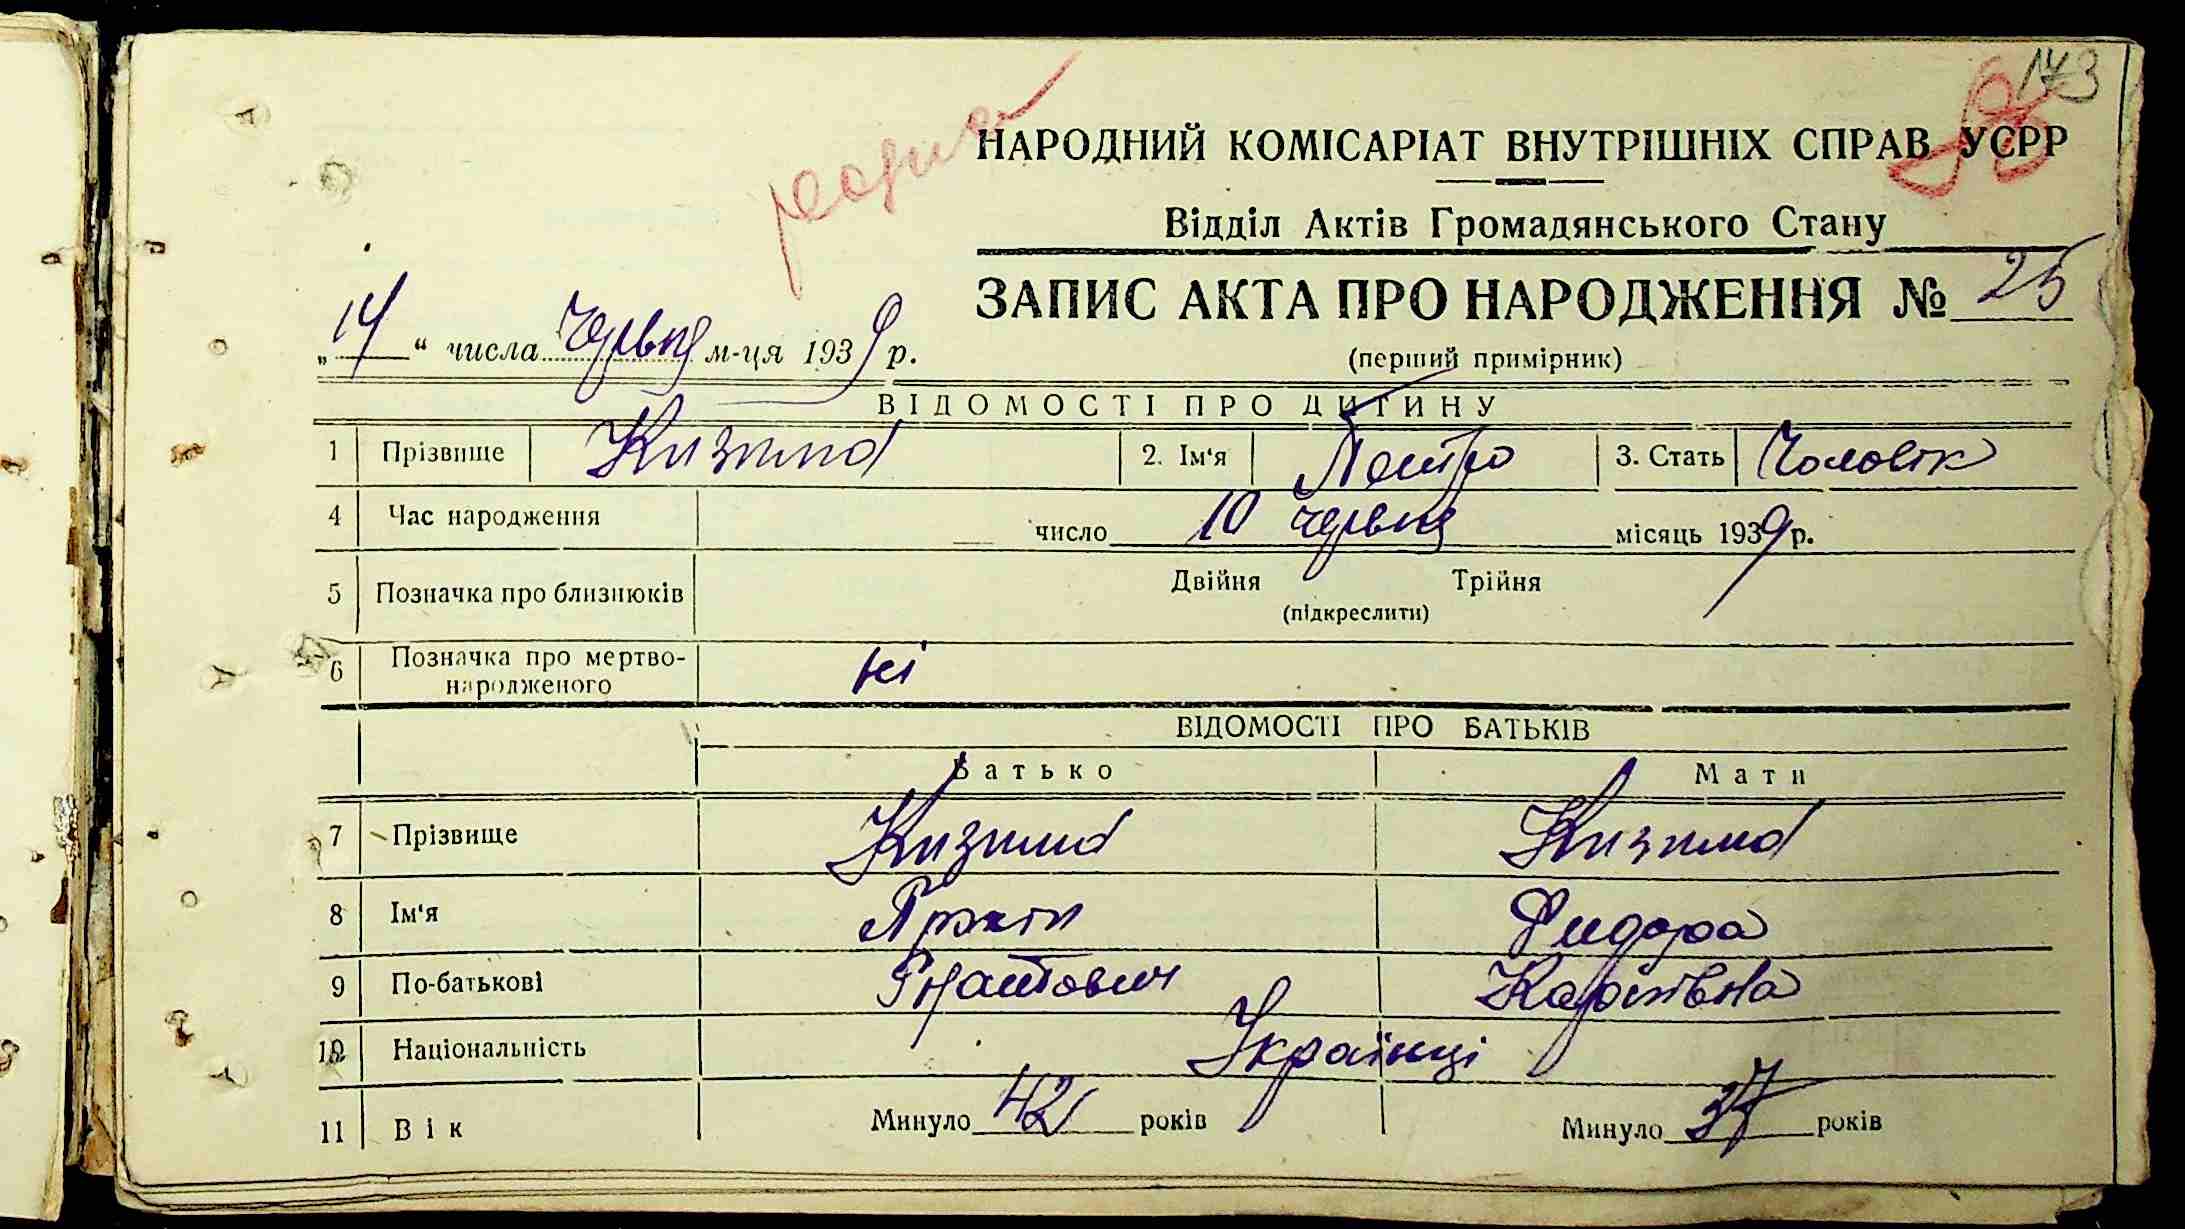 173
НАРОДНИЙ КОМІСАРІАТ ВНУТРІШНІХ СПРАВ УСРР
Відділ Актів Громадянського Стану
ЗАПИС АКТА ПРО НАРОДЖЕННЯ № 25
„14“ числа червня м-ця 1939 р.
(перший примірник)
ВІДОМОСТІ ПРО ДИТИНУ
1 Прізвище Кизима 2. Ім'я Петро 3. Стать Чоловік
4 Час народження число 10 червня місяць 1939 р.
5 Позначка про близнюків Двійня Трійня
(підкреслити)
6 Позначка про мертво-
народженого ні
ВІДОМОСТІ ПРО БАТЬКІВ
Батько Мати
7 Прізвище Кизима Кизима
8 Ім'я
9 По-батькові Гнатович Карпівна
10 Національність Українці
11 Вік Минуло 42 років Минуло 37 років